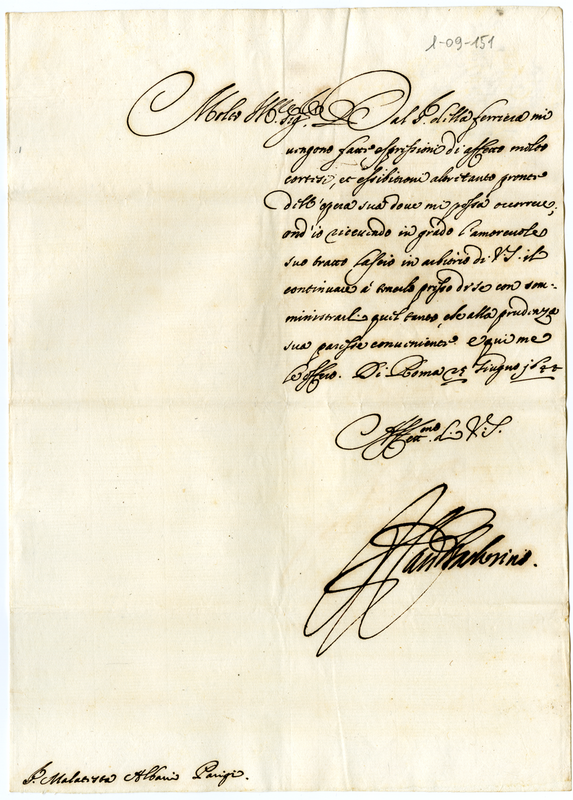 1-09-151
Molto Ill.re Sig.re Dal S.r della Ferriera mi
vengono fatte espressioni di affetto molto
cortesi, et essibitioni altretanto pronte
dell'opera sua dove mi possa occorrere;
ond'io ricevendo in grado l'amorevole
suo tratto lascio in arbitrio di V.S. il
continuare à tenerlo presso di se con som-
ministrarli quel tanto, che alla prudenza
sua paresse conveniente. E qui me
le offero. Di Roma 25 Giugno 16
Aff.mo di V.S.
Barberino.
S.r Malatesta Albani Parigi.